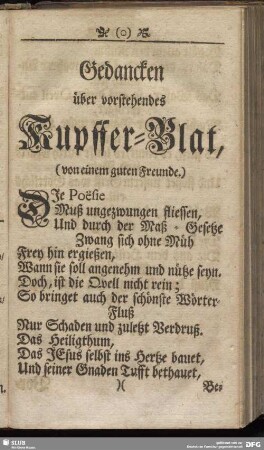 (o)
Gedancken
über vorstehendes
Kupffer-Blat,
(von einem guten Freunde.)
DJe Poësie
Muß ungezwungen fliessen,
Und durch der Maß-Gesetze
Zwang sich ohne Müh
Frey hin ergießen,
Wann sie soll angenehm und nütze seyn.
Doch, ist die Qvell nicht rein;
So bringet auch der schönste Wörter-
Fluß
Nur Schaden und zuletzt Verdruß.
Das Heiligthum,
Das JEsus selbst ins Hertze bauet,
Und seiner Gnaden Tufft bethauet,
)( Be-
SLUB
DFG